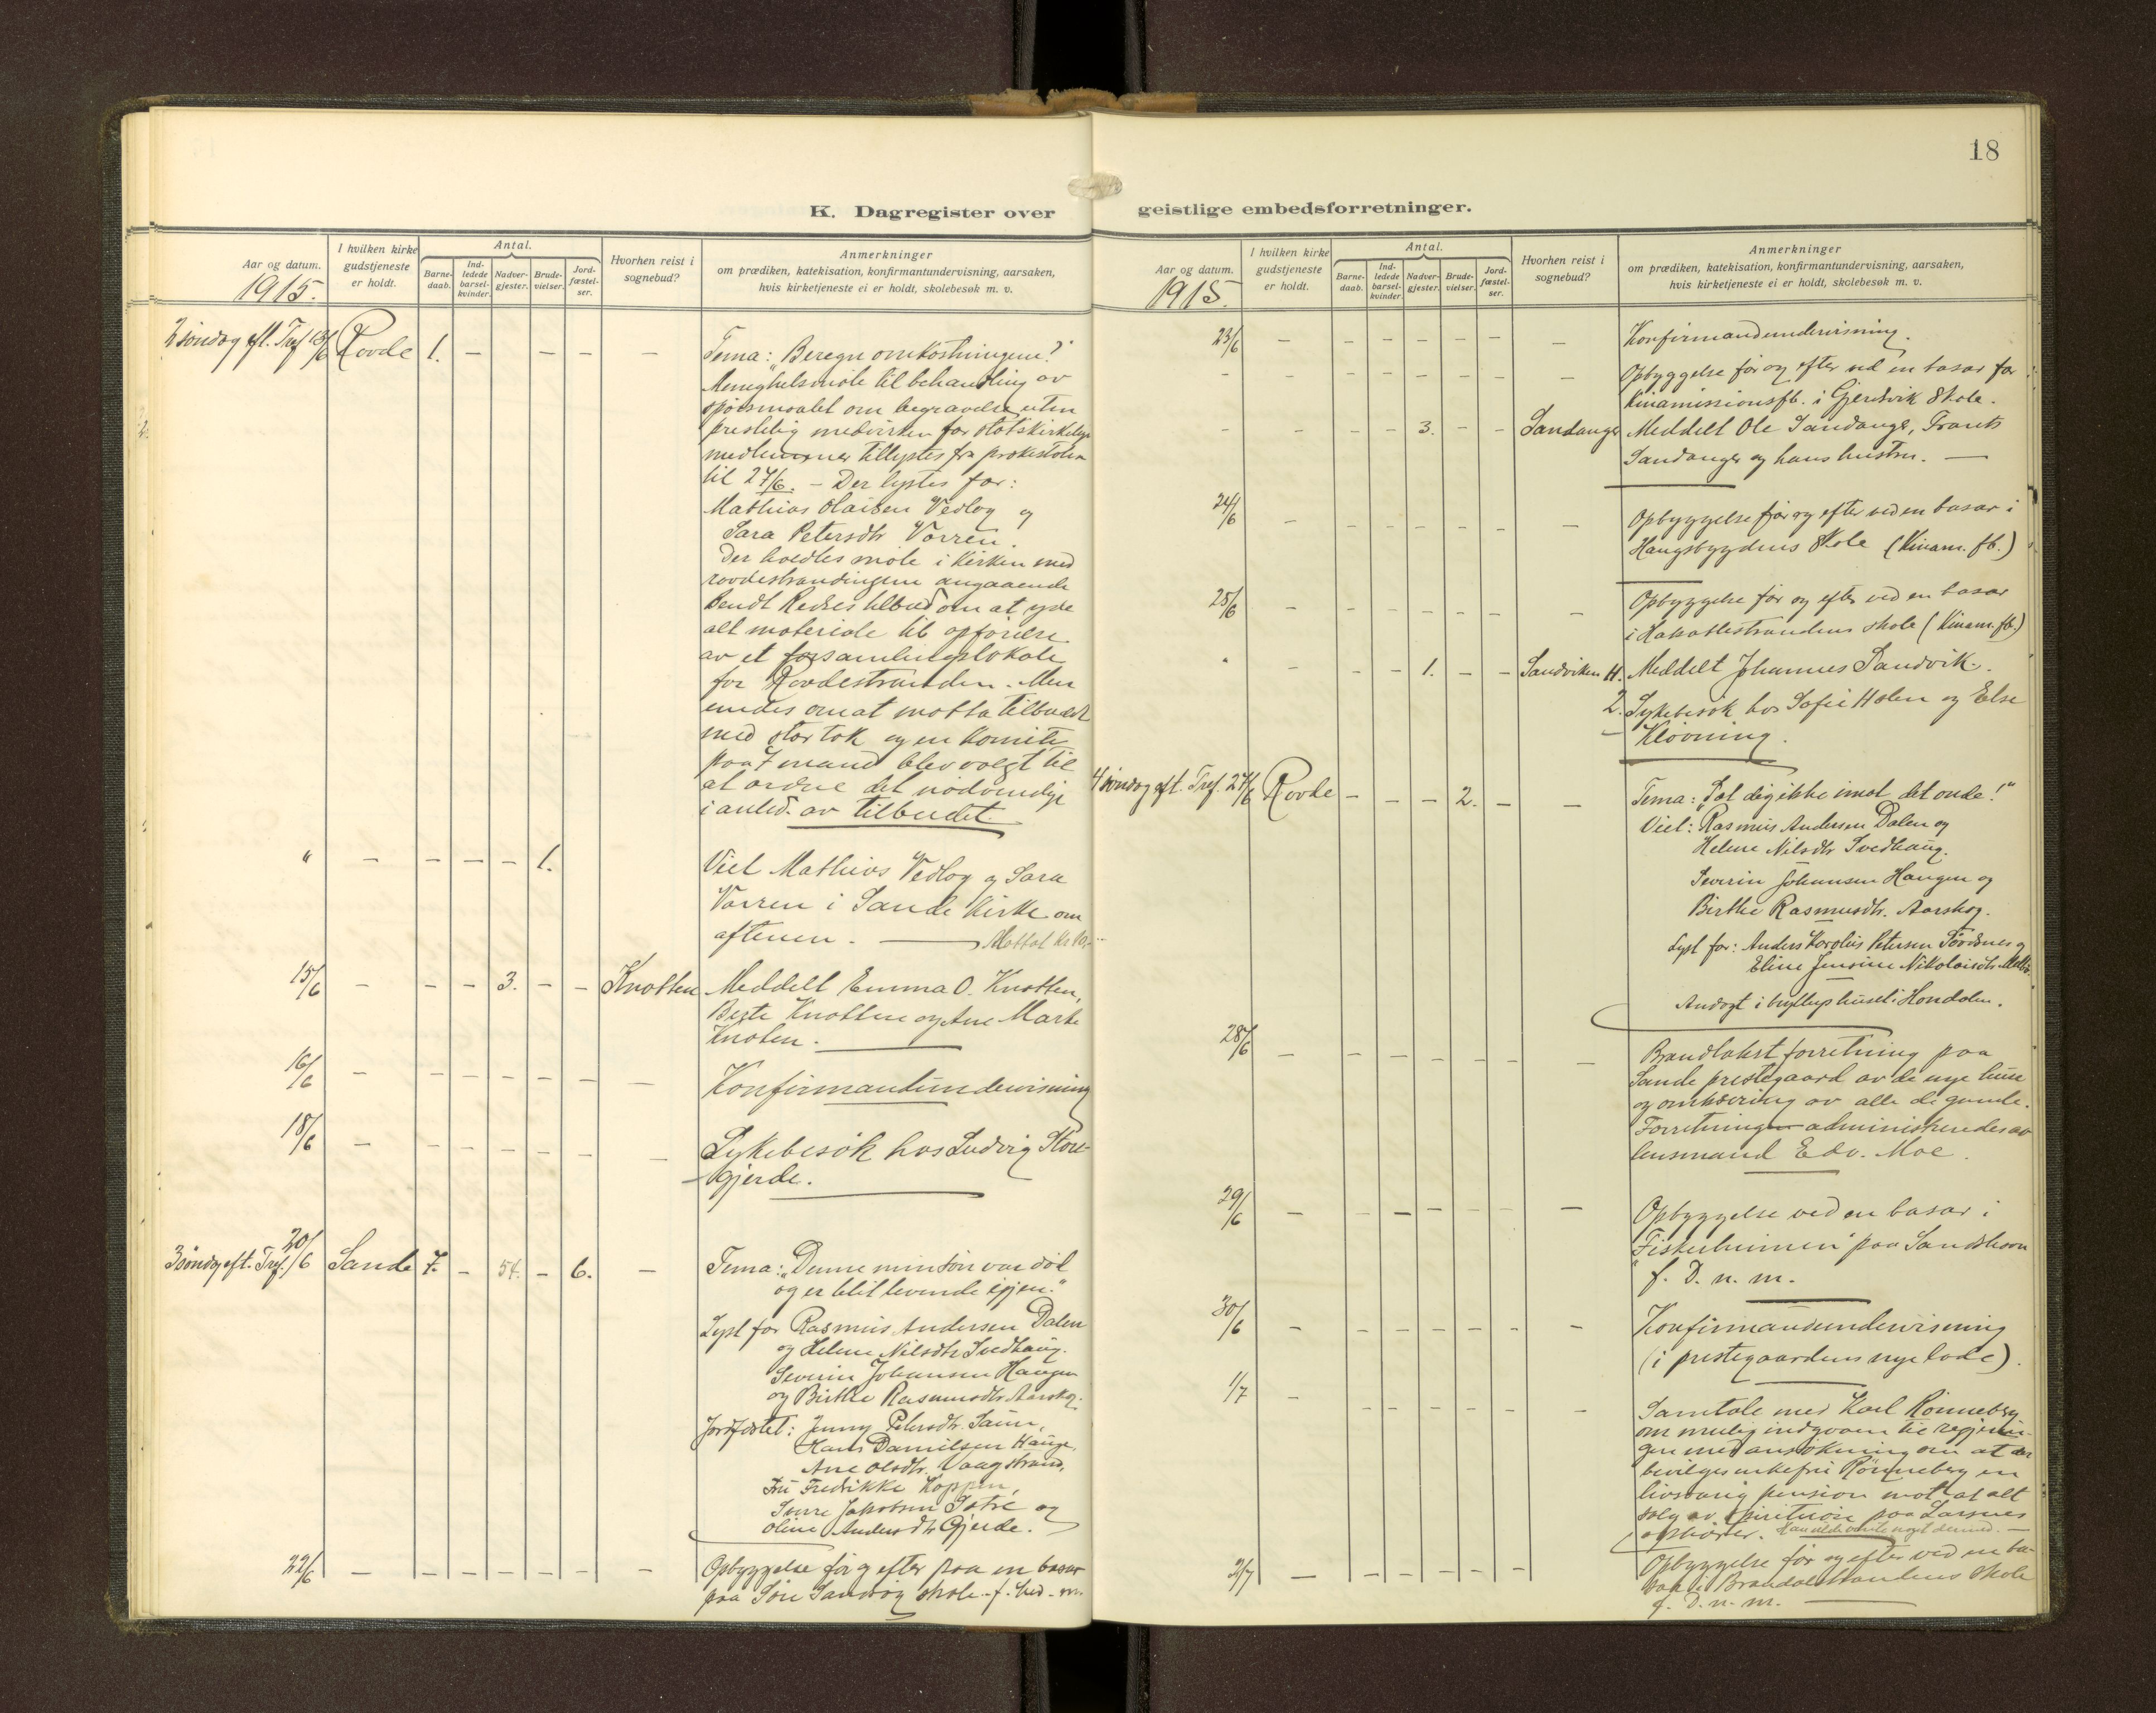 18
K. Dagregister over geistlige embedsforretninger.
Aar og datum.
1915.
I hvilken kirke
gudstjeneste
er holdt.
Antal.
Barne-
daab.
Ind-
ledede
barsel-
kvinder.
Nadver-
gjester.
Brude-
vielser.
Jord-
fæstel-
ser.
Hvorhen reist i
sognebud?
Anmerkninger
om prædiken, katekisation, konfirmantundervisning, aarsaken,
hvis kirketjeneste ei er holdt, skolebesøk m. v.
2 söndag eft. Tref 13/6 Rovde 1. – – – –
Tema: "Beregn omkostningene?"
Menighetsmöte til behandling av
spörsmaalet om begravelse uten
prestelig medvirken for statskirkelige
medlemmer tillystes fra prækestolen
til 27/6. – Der lystes for:
Mathias Olaisen Vedlog og
Sara Petersdtr Vorren.
Der holdtes möte i kirken med
rovdestrandingene angaaende
Bendt tilbud om at yde
alt materiale til opförelse
av et forsamlingslokale
for Rovdestranden. Men
endes om at motta tilbudet
med stor tak og en komite
paa 7 mand blev valgt til
at ordne det nödvendige
i anled. av tilbudet.
" – – – – – 1.
Viet Mathias Vedlog og Sara
Vorren i Sande kirke om
aftenen. – Mottat kr 10,-
15/6 – – – 3. – – Knotten
Meddelt Emma O. Knotten,
Beste Knotten og Ane Marte
Knoten.
16/6 – – – – – – –
Konfirmandundervisning
18/6 – – – – – – –
Sykebesök hos Ludvig Store-
gjerde.
3 söndag eft. Tref. 20/6 Sande 7. – 54. – 6. –
Tema: "Denne min sön var död
og er blit levende igjen."
Lyst for Rasmus Andersen Dalen
og Helene Nilsdtr Svedhaug.
Severin Johansen Haugen
og Birthe Rasmusdtr. Aarskog.
Jordfæstet: Jenny Petersdtr. Saun,
Hans Danielsen Hauge,
Ane Olsdtr. Vaagstrand,
Fru Fredrikke Koppen,
Jakobsen Sætre og
Oline Andersdtr Gjerde.
22/6 – – – – – – –
Opbyggelse för og efter paa en basar
paa Söre Sandvög skole f.
Aar og datum.
1915.
I hvilken kirke
gudstjeneste
er holdt.
Antal.
Barne-
daab.
Ind-
ledede
barsel-
kvinder.
Nadver-
gjester.
Brude-
vielser.
Jord-
fæstel-
ser.
Hvorhen reist i
sognebud?
Anmerkninger
om prædiken, katekisation, konfirmantundervisning, aarsaken,
hvis kirketjeneste ei er holdt, skolebesøk m. v.
23/6 – – – – – – –
Konfirmandundervisning.
– – – – – – – –
Opbyggelse för og efter ved en basar for
Kinamissionsfb. i Gjerdsvik skole.
– – – – 3. – – Sandanger
Meddelt Ole Sandanger, Frants
Sandanger og hans hustru. –
24/6 – – – – – – –
Opbyggelse för og efter ved en basar i
Haugsbygdens skole (Kinam. fb.)
25/6 – – – – – – –
Opbyggelse för og efter ved en basar
i Hakallestrandens skole (Kinam. fb.)
" – – – 1. – – Sandviken H.
Meddelt Johannes Sandvik.
2. Sykebesök hos Sofie Holen og Else
Klovning.
4 söndag eft. Tref. 27/6 Rovde – – – 2. – –
Tema: "Sæt dig ikke imot det onde!"
Viet: Rasmus Andersen Dalen og
Helene Nilsdtr Svedhaug.
Severin Johansen Haugen og
Birthe Rasmusdtr. Aarskog.
Lyst for: Anders Karolus Petersen Tördsnes og
Eline Jensine Nikolaisdtr
Andagt i bryllupshuset i Hondalen.
28/6 – – – – – – –
Brandtakstforretning paa
Sande prestegaard av de nye huse
og omtaksering av alle de gamle.
Forretningen administreredes av
lensmand Edv. Moe.
29/6 – – – – – – –
Opbyggelse ved en basar i
"Fiskerheimen" paa Sandshavn
f. D. n. m.
30/6 – – – – – – –
Konfirmandundervisning
(i prestegaardens nye lade).
1/7 – – – – – – –
Samtale med Karl Rönneberg
om mulig indgaaen til regjerin-
gen med ansökning om at der
bevilges enkefru Rönneberg en
livsvarig pension mot at alt
salg av spirituose paa Larsnes
ophörer. Han vilde vente noget dermed. –
2/7 – – – – – –
Opbyggelse för og efter ved en ba-
sar i Brandalstrandens skole
f. D. n. m.